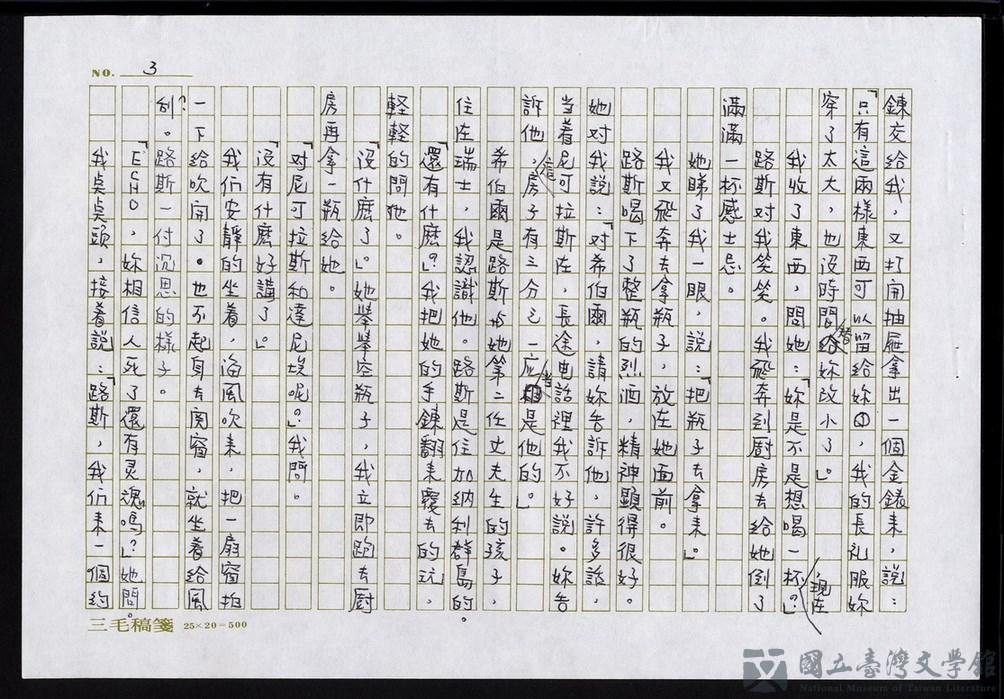 NO. 3
鍊交給我，又打開抽屜拿出一個金錶來，說：
「只有這兩樣東西可以留給妳，我的長礼服妳
穿了太大，也沒時間替妳改小了」。
我收了東西，問她：「妳是不是想喝一杯，現在？」
路斯对我笑笑。我飛奔到厨房去給她倒了
滿滿一杯威士忌。
她睇了我一眼，說：「把瓶子去拿来」。
我又飛奔去拿瓶子，放在她面前。
路斯喝下了整瓶的烈酒，精神顯得很好。
她对我說：「对希伯爾，請妳告訴他，許多話，
当着尼可拉斯在，長途电話裡我不好說。妳告
訴他，這房子有三分之一應当是他的。」
希伯爾是路斯与她第二任丈夫生的孩子，
住在瑞士，我認識他。路斯是住加納利群島的。
「還有什麽？」我把她的手鍊翻来覆去的玩，
輕輕的問她。
「沒什麽了」。她舉舉空瓶子，我立即跑去厨
房再拿一瓶給她。
「对尼可拉斯和達尼埃呢？」我問。
「沒有什麽好講了」。
我们安靜的坐着，海風吹来，把一扇窗拍
一下給吹開了。也不起身去関窗，就坐着給風
刮。路斯一付沉思的樣子。
「ECHO，妳相信人死了還有灵魂嗎？」她問。
我点点頭，接着說：「路斯，我们来一個約
三毛稿箋 25×20=500
國立臺灣文學館
National Museum of Taiwan Literature